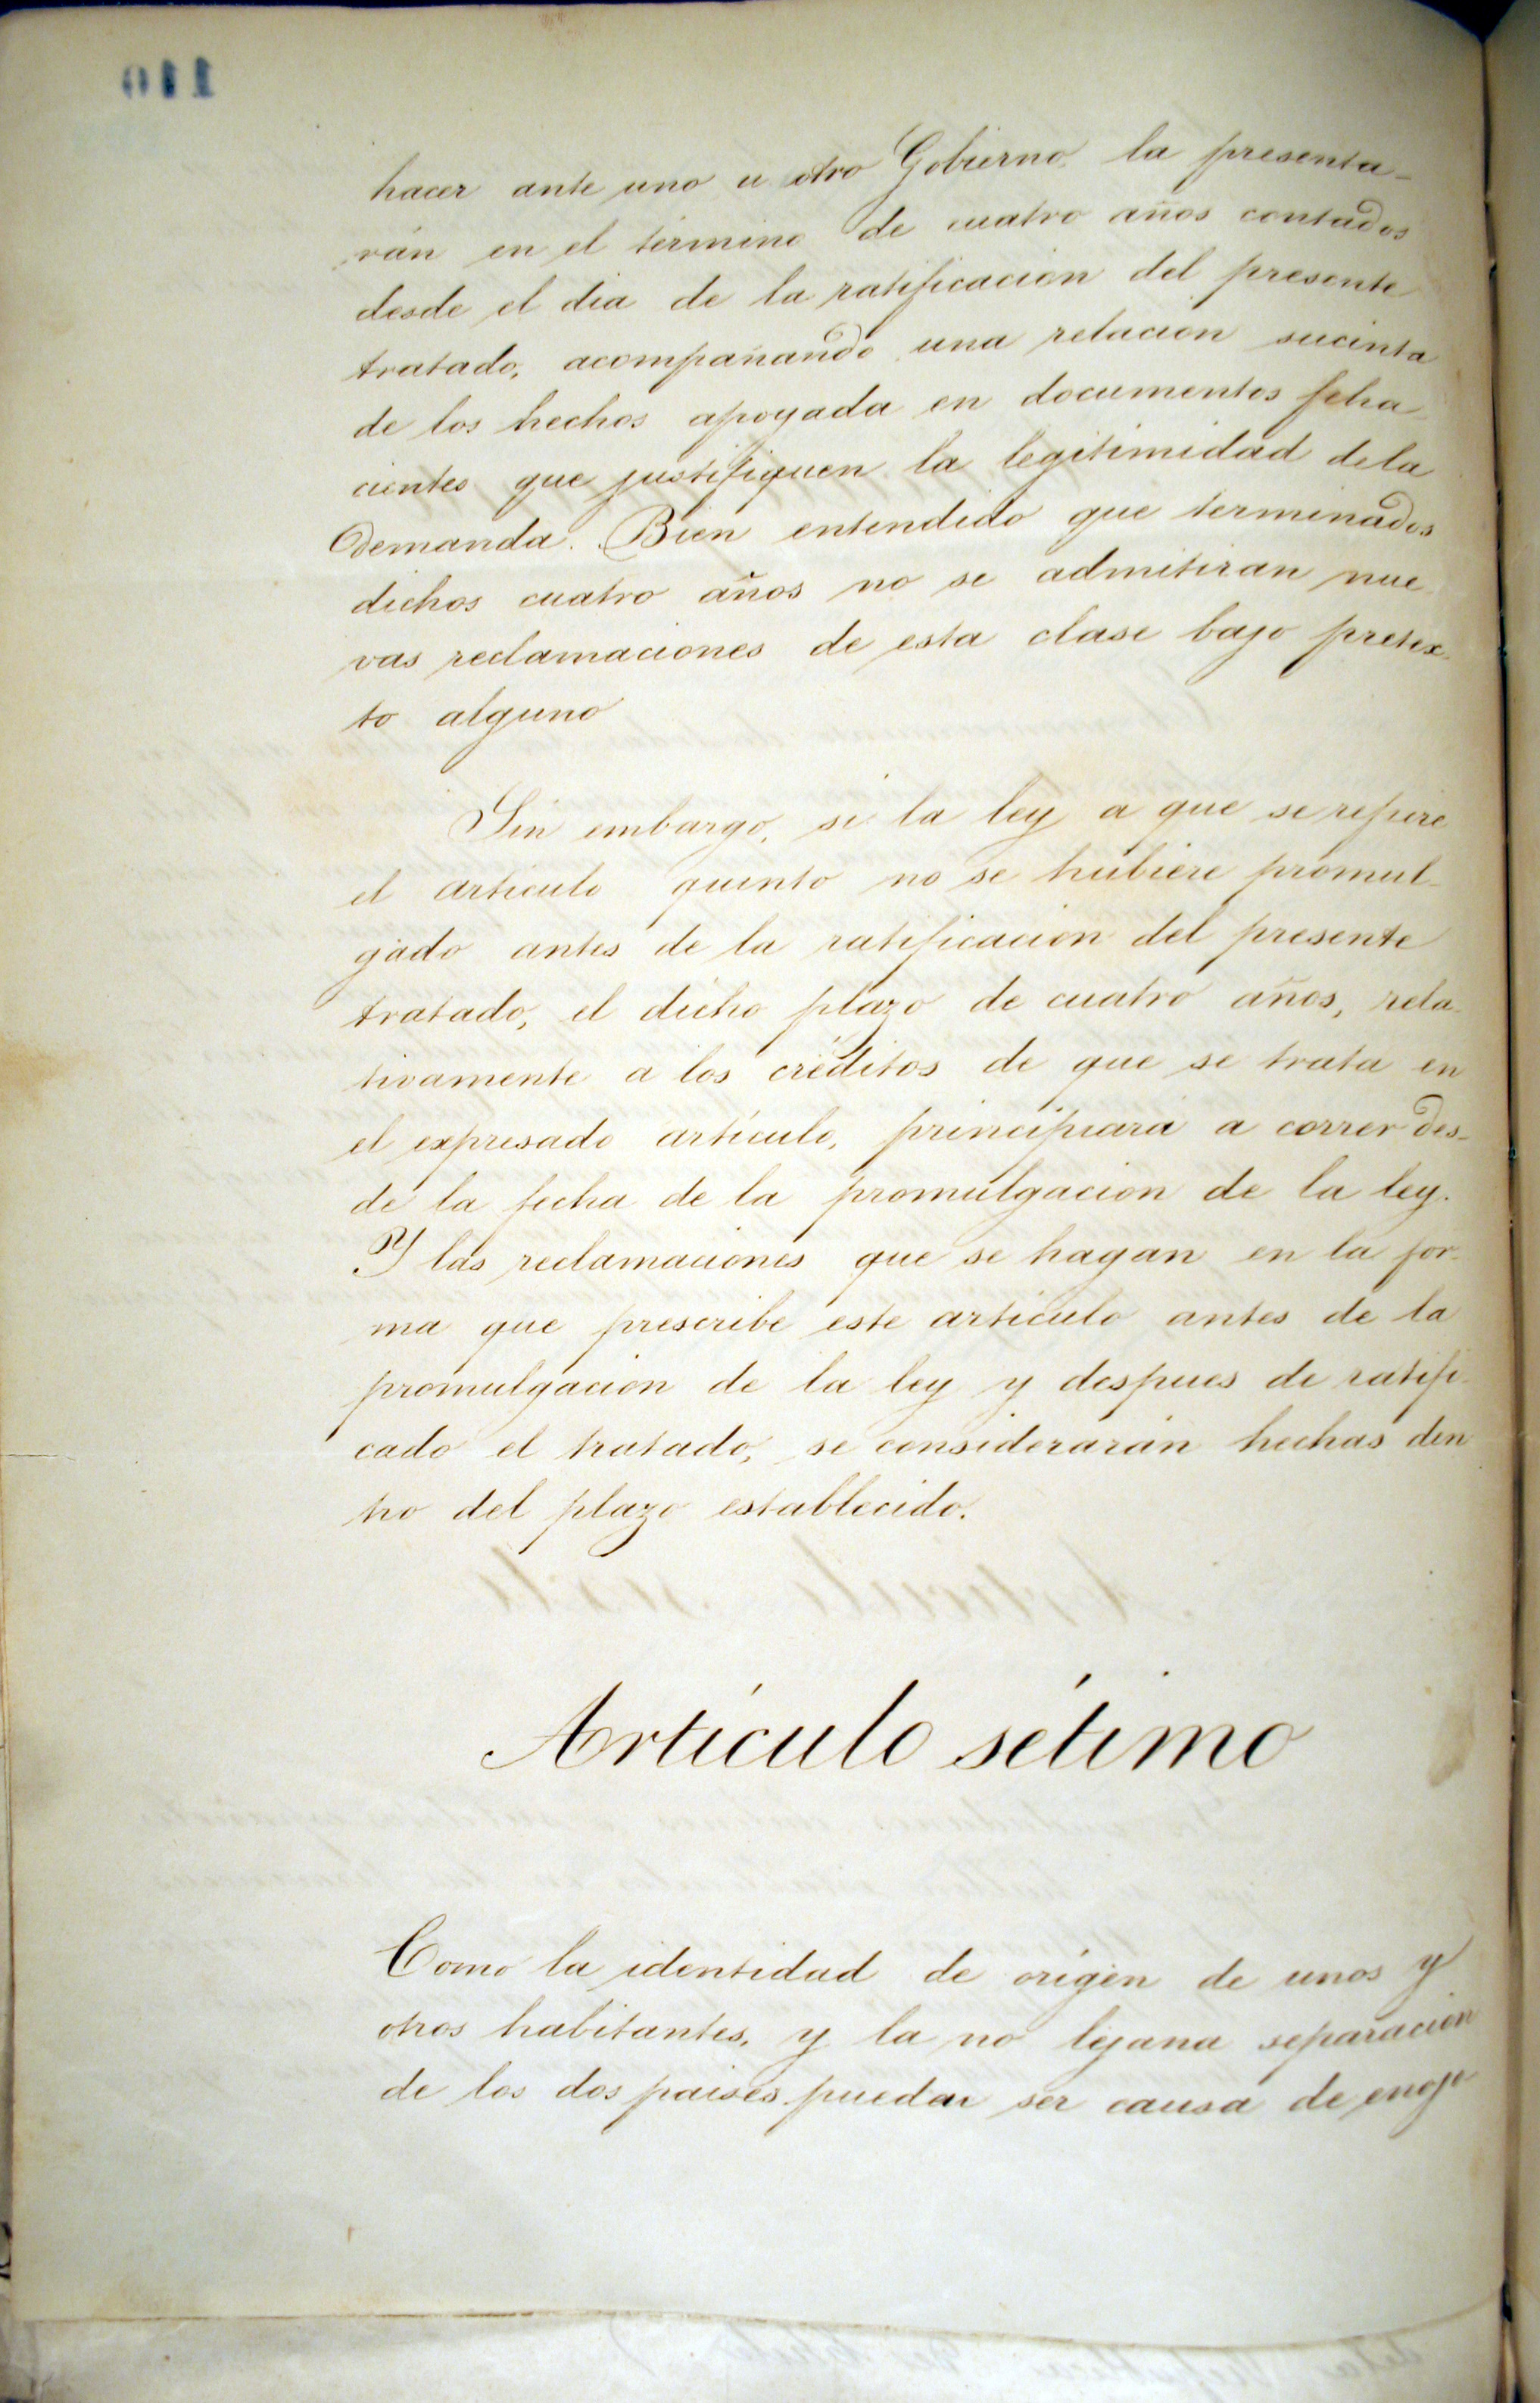 hacer ante uno u otro Gobierno, la presenta-
rán en el término de cuatro años contados
desde el dia de la ratificacion del presente
tratado, acompañando una relacion sucinta
de los hechos apoyada en documentos feha
cientes que justifiquen la legitimidad de la
demanda. Bien entendido que terminados
dichos cuatro años no se admitiran nue
vas reclamaciones de esta clase bajo pretex-
to alguno
Sin embargo, si la ley a que se refiere
el artículo quinto no se hubiere promul-
gado antes de la ratificacion del presente
tratado, el dicho plazo de cuatro años, rela-
tivamente a los créditos de que se trata en
el expresado artículo, principiará a correr des-
de la fecha de la promulgacion de la ley.
Y las reclamaciones que se hagan en la for-
ma que prescribe este artículo antes de la
promulgacion de la ley y despues de ratifi-
cado el tratado, se considerarán hechas den
tro del plazo establecido.
Artículo sétimo
Como la identidad de orígen de unos y
otros habitantes, y la no lejana separacion
de los dos paises puedan ser causa de enojo